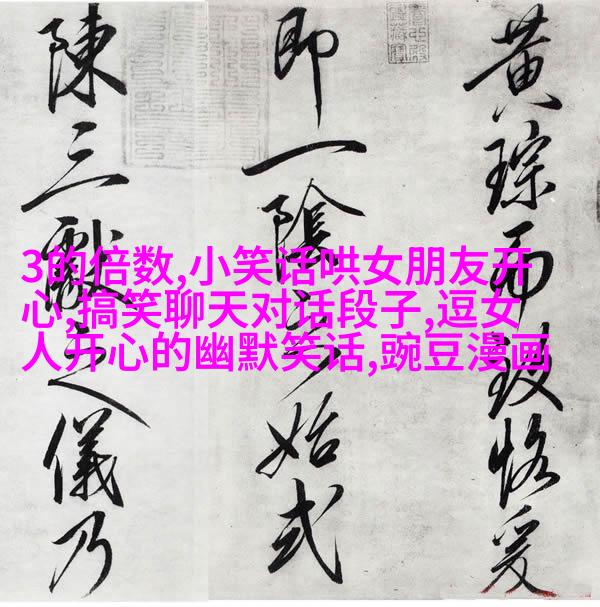 黄琮而致恪爰
即一陰之始式
陳三獻之儀乃
3的倍数,小笑话哄女朋友开
心,搞笑聊天对话段子,逗女
人开心的幽默笑话,豌豆漫画